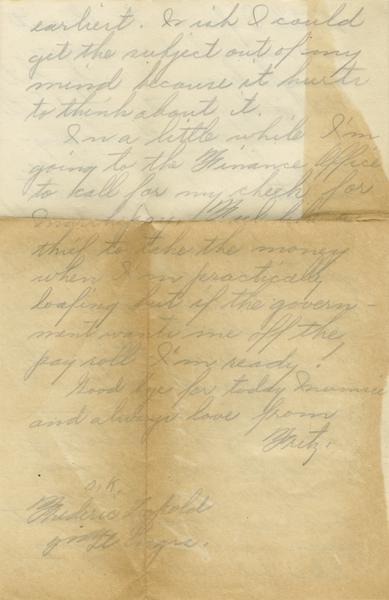 earliest. I wish I could
get the subject out of my
mind because it hurts
to think about it.
In a little while I'm
going to the Finance Office
to call for my check for
thief to take the money
when I'm practically
loafing but if the govern-
ment wants me off the
pay roll I'm ready.
Good bye for today
and always love from
Fritz.
O.K.
Frederic